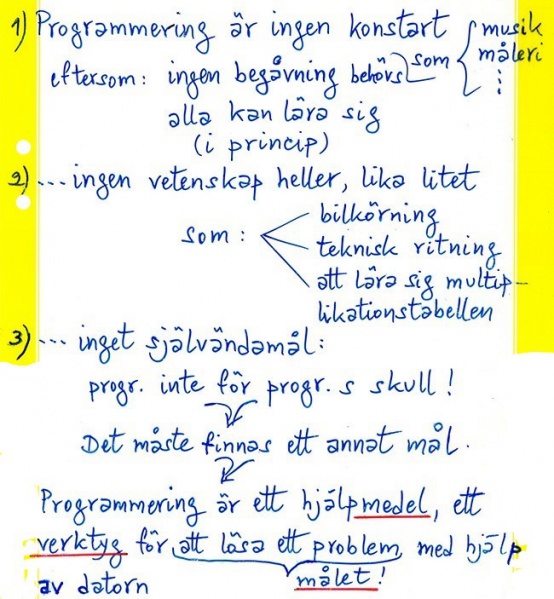 1) Programmering är ingen konstart { musik
eftersom: ingen begåvning behövs som { måleri
alla kan lära sig ⋮
(i princip)
2) ... ingen vetenskap heller, lika litet
som: bilkörning
teknisk ritning
att lära sig multip-
likationstabellen
3) ... inget självändamål:
progr. inte för progr.s skull!
Det måste finnas ett annat mål.
Programmering är ett hjälpmedel, ett
verktyg för att lösa ett problem, med hjälp
av datorn målet!